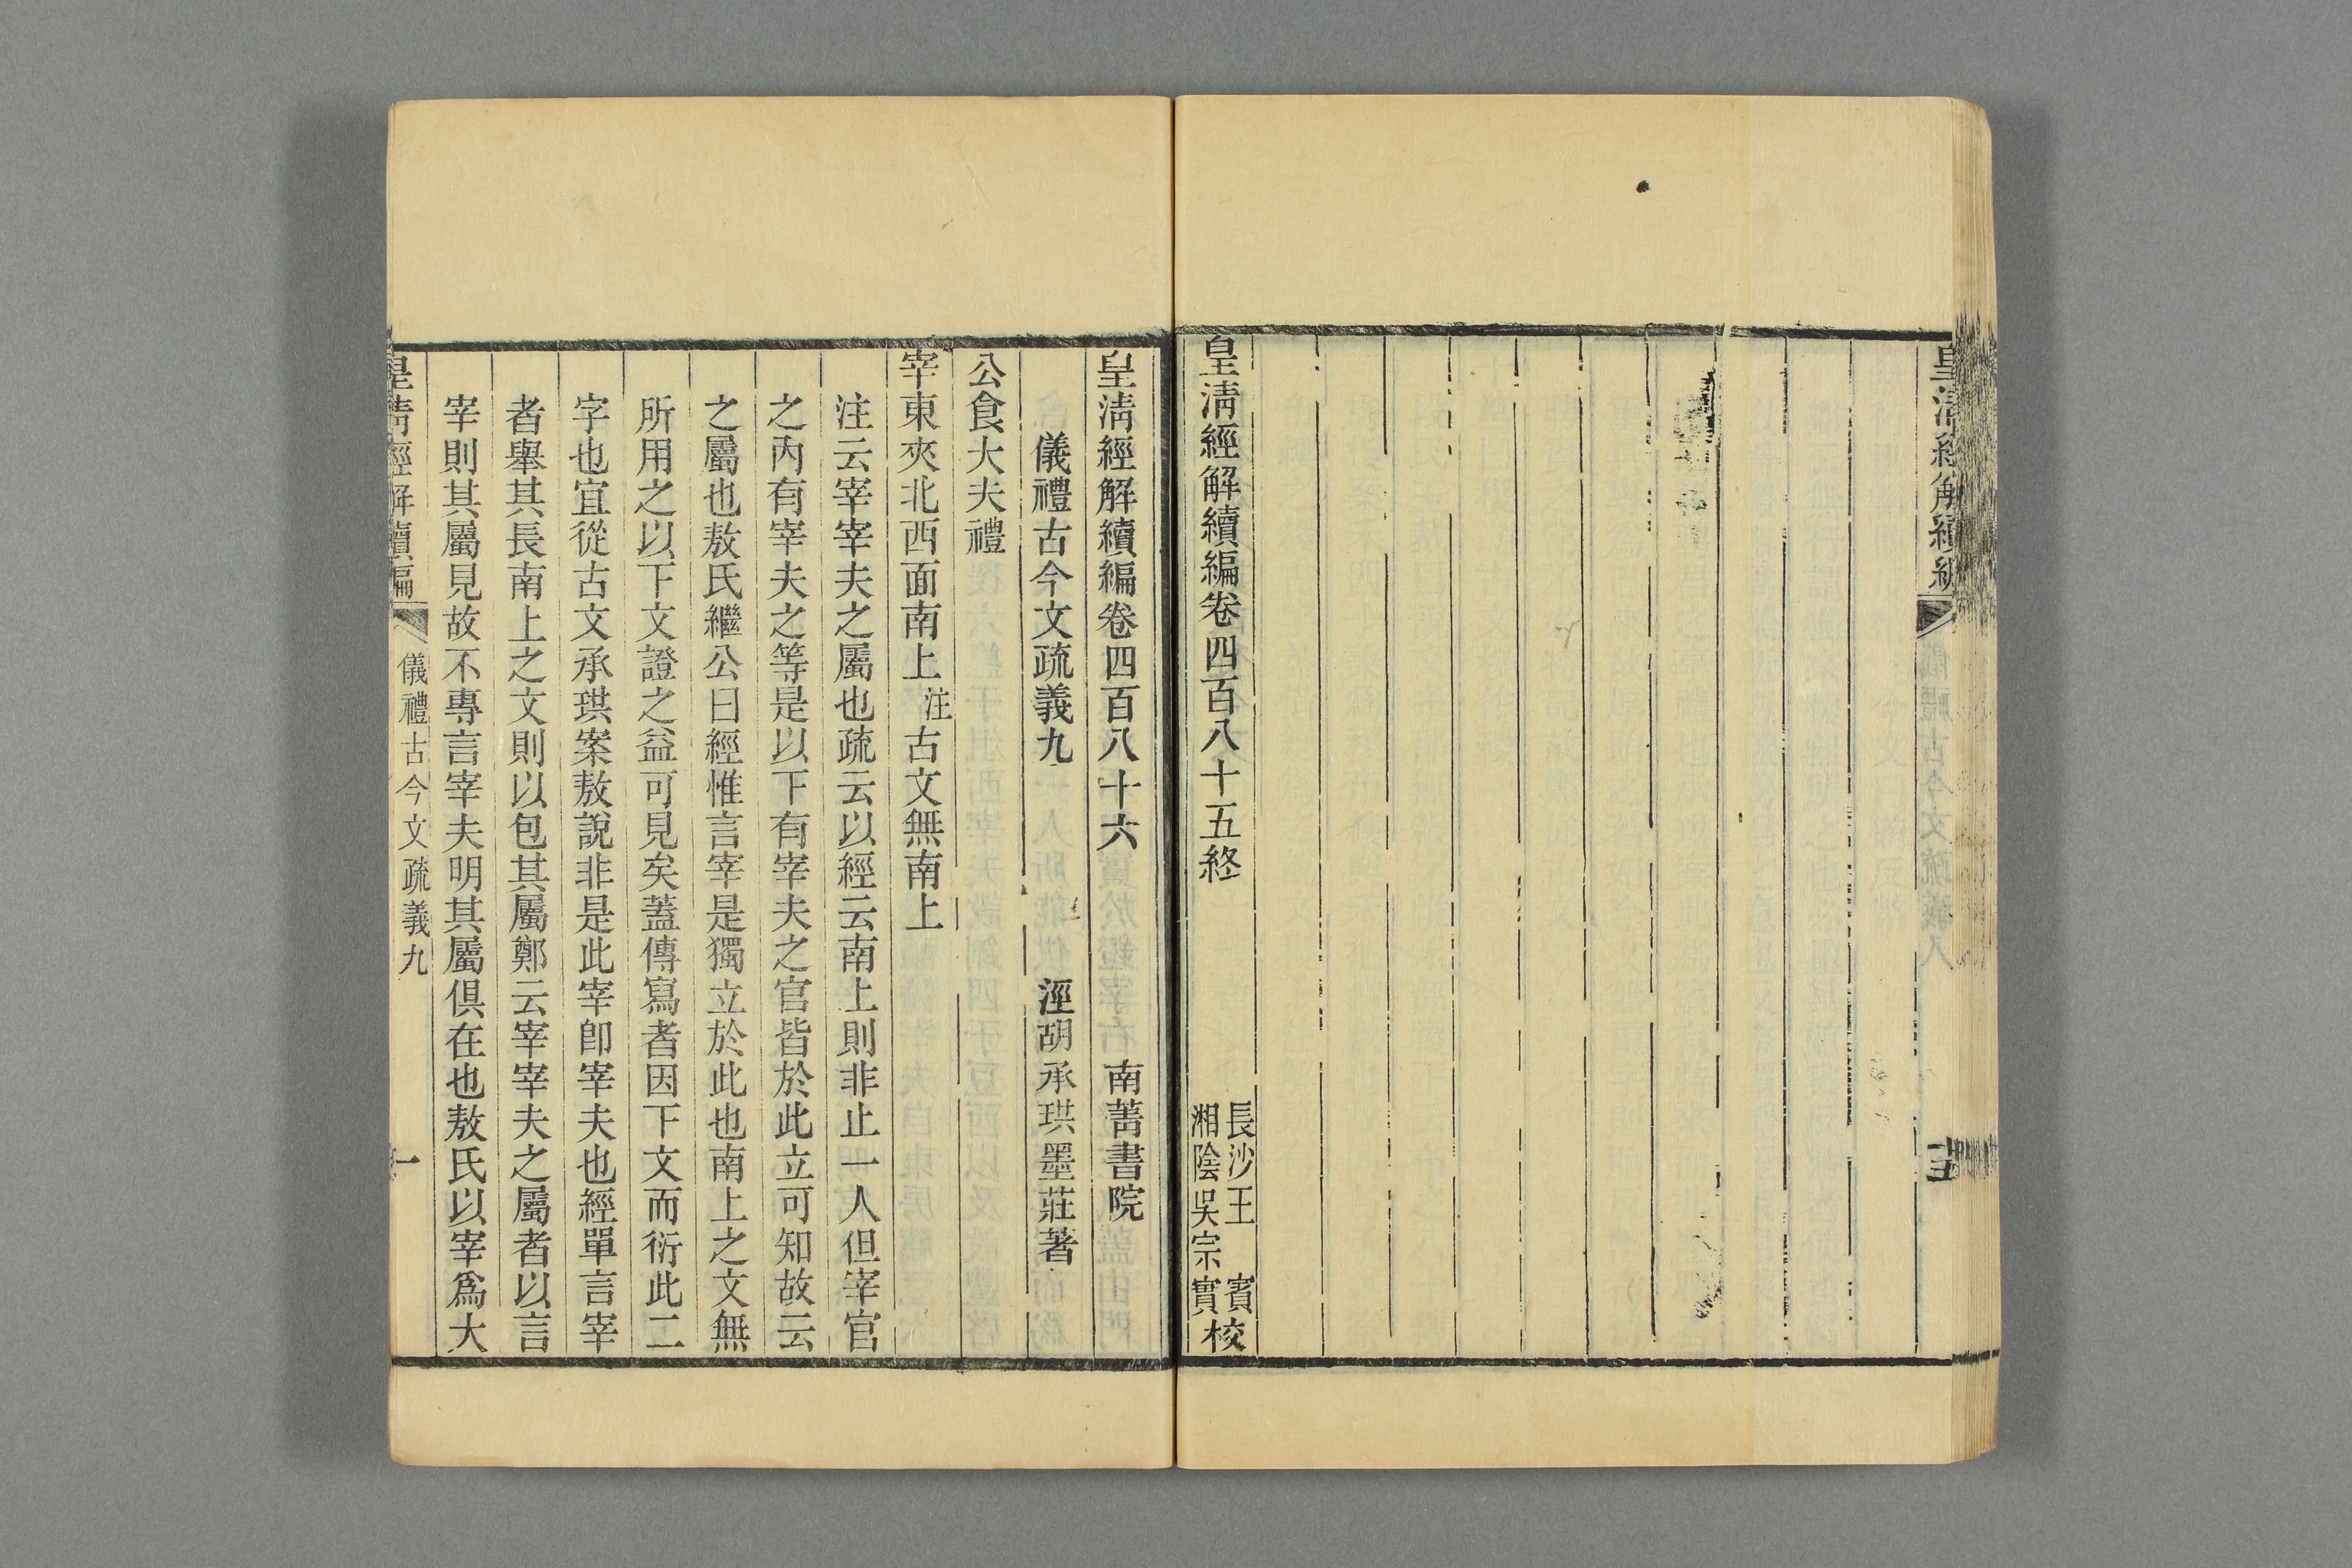 皇清經解續編
皇清經解續編卷四百八十五終
長沙王賓
湘陰吳宗實校
皇清經解續編卷四百八十六 南菁書院
儀禮古今文疏義九 涇胡承珙墨莊著
公食大夫禮
宰東夾北西面南上 注 古文無南上
注云宰宰夫之屬也疏云以經云南上則非止一人但宰官
之內有宰夫之等是以下有宰夫之官皆於此立可知故云
之屬也敖氏繼公曰經惟言宰是獨立於此也南上之文無
所用之以下文證之益可見矣蓋傳寫者因下文而衍此二
字也宜從古文承珙案敖說非是此宰卽宰夫也經單言宰
者舉其長南上之文則以包其屬鄭云宰宰夫之屬者以言
宰則其屬見故不專言宰夫明其屬俱在也敖氏以宰爲大
皇清經解續編 儀禮古今文疏義九 一